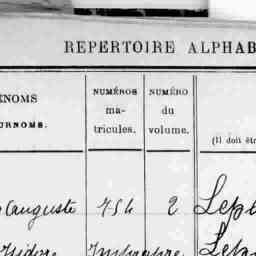 REPERTOIRE ALPHAB
ÉNOMS
URNOMS.
NUMÉROS
ma-
tricules.
NUMÉRO
du
volume.
(Il doit êtr
auguste 754 2 Lept
Isidore